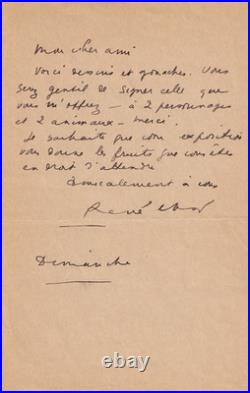 Mon cher ami
Voici dessins et gouaches. Vous
serez gentil de signer celle que
vous m'offrez - à 2 personnages
et 2 animaux - merci.
Je souhaite que votre exposition
vous donne les fruits que vous êtes
en droit d'attendre
Amicalement à vous
René Char
Dimanche
© delcampe.net